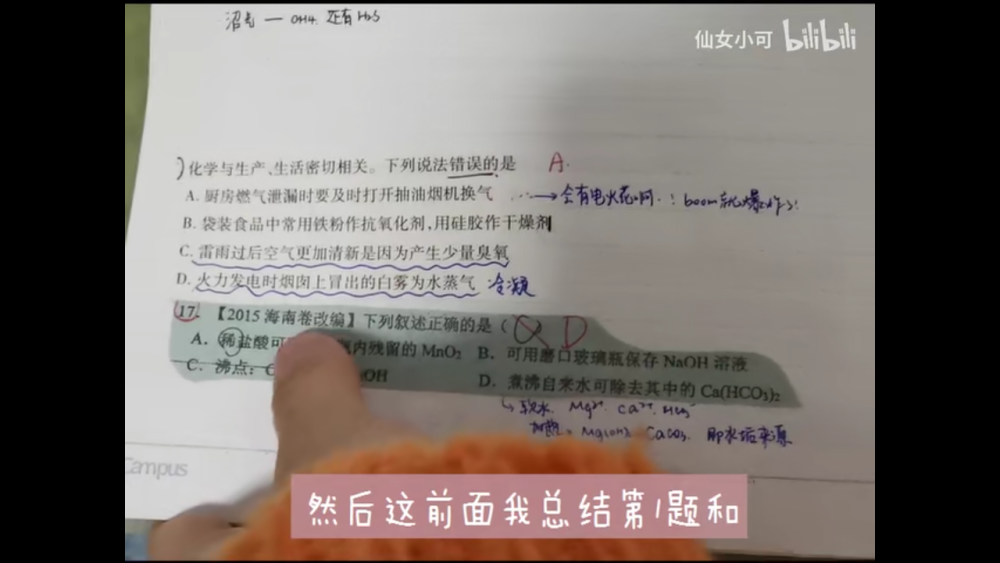 仙女小可 bilibili
沼气 — CH4. 还有H2S
化学与生产、生活密切相关。下列说法错误的是 A.
A. 厨房燃气泄漏时要及时打开抽油烟机换气 ...→会有电火花啊.！boom就爆炸了!
B. 袋装食品中常用铁粉作抗氧化剂,用硅胶作干燥剂
C. 雷雨过后空气更加清新是因为产生少量臭氧
D. 火力发电时烟囱上冒出的白雾为水蒸气 冷凝
17. 【2015海南卷改编】下列叙述正确的是( ) D
A. 稀盐酸可 内残留的 MnO₂ B. 可用磨口玻璃瓶保存 NaOH 溶液
C. 沸点: OH D. 煮沸自来水可除去其中的 Ca(HCO₃)₂
软水. Mg²⁺ Ca²⁺. HCO₃⁻
加热 Mg(OH)₂ CaCO₃. 即水垢来源
Campus
然后这前面我总结第1题和